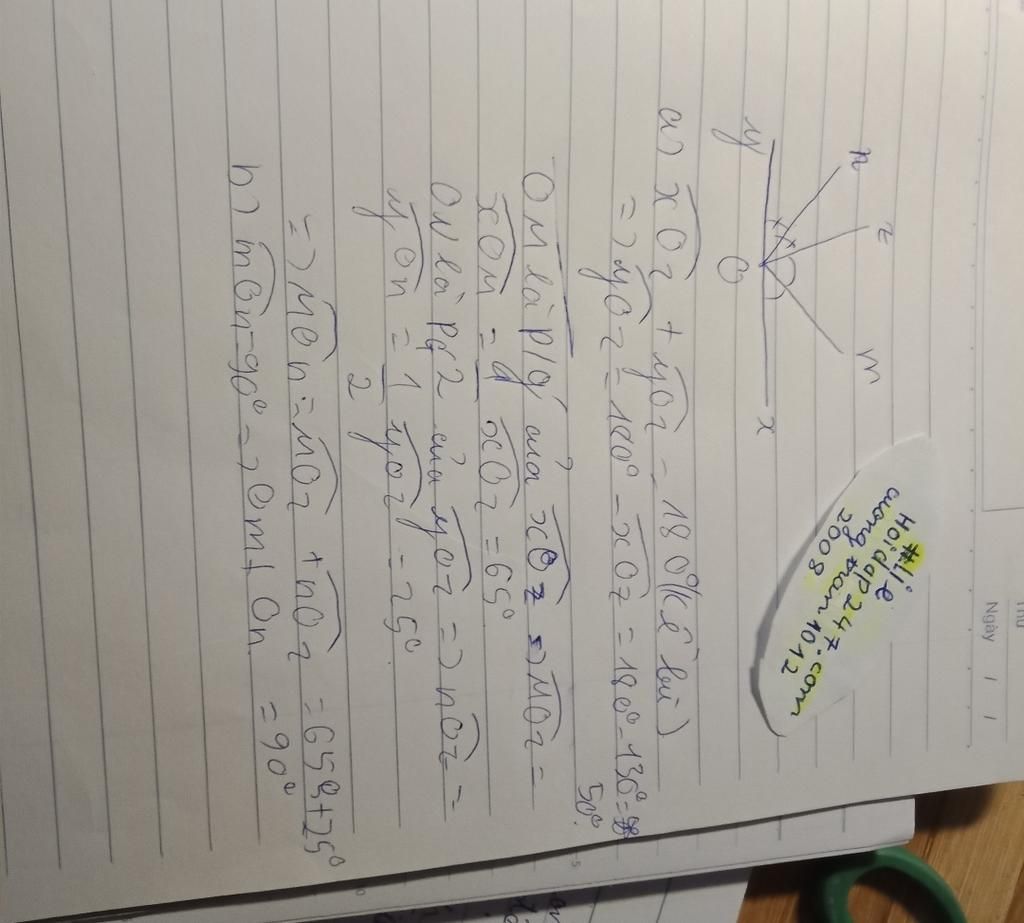 Thứ
Ngày / /
#lie
Hoidap247.com
cuongtran1012
2008
n
z
m
y
O
x
a) xOz + yOz = 180° (kề bù)
=> yOz = 180° - xOz = 180° - 130° =
50°
OM là p/g của xOz => MOz =
xOM = xOz = 65°
ON là pg2 của yOz => nOz =
yOn = 1/2 yOz = 25°
=> MOn = MOz + nOz = 65° + 25°
= 90°
b) mOn = 90° => Om ⊥ On